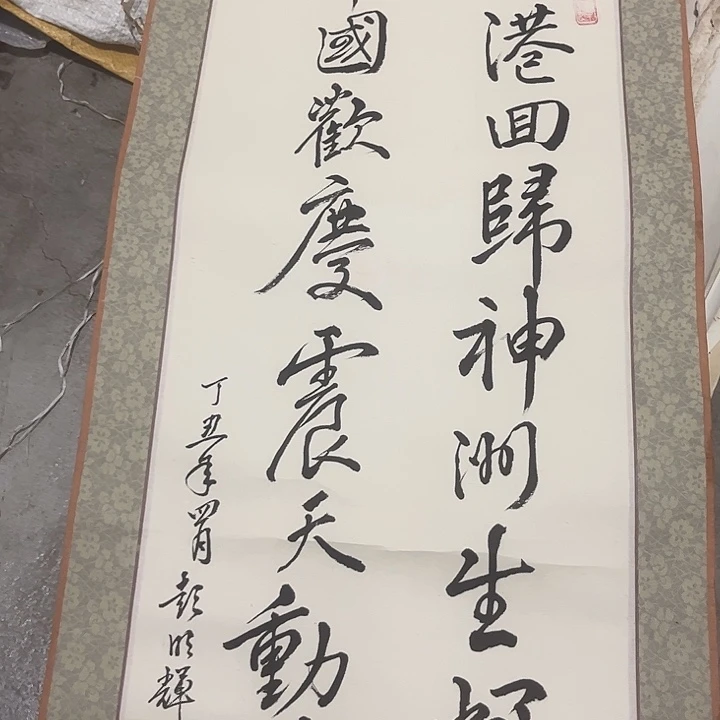 港回歸神洲生
國歡慶震天動
丁丑年四月 彭明輝